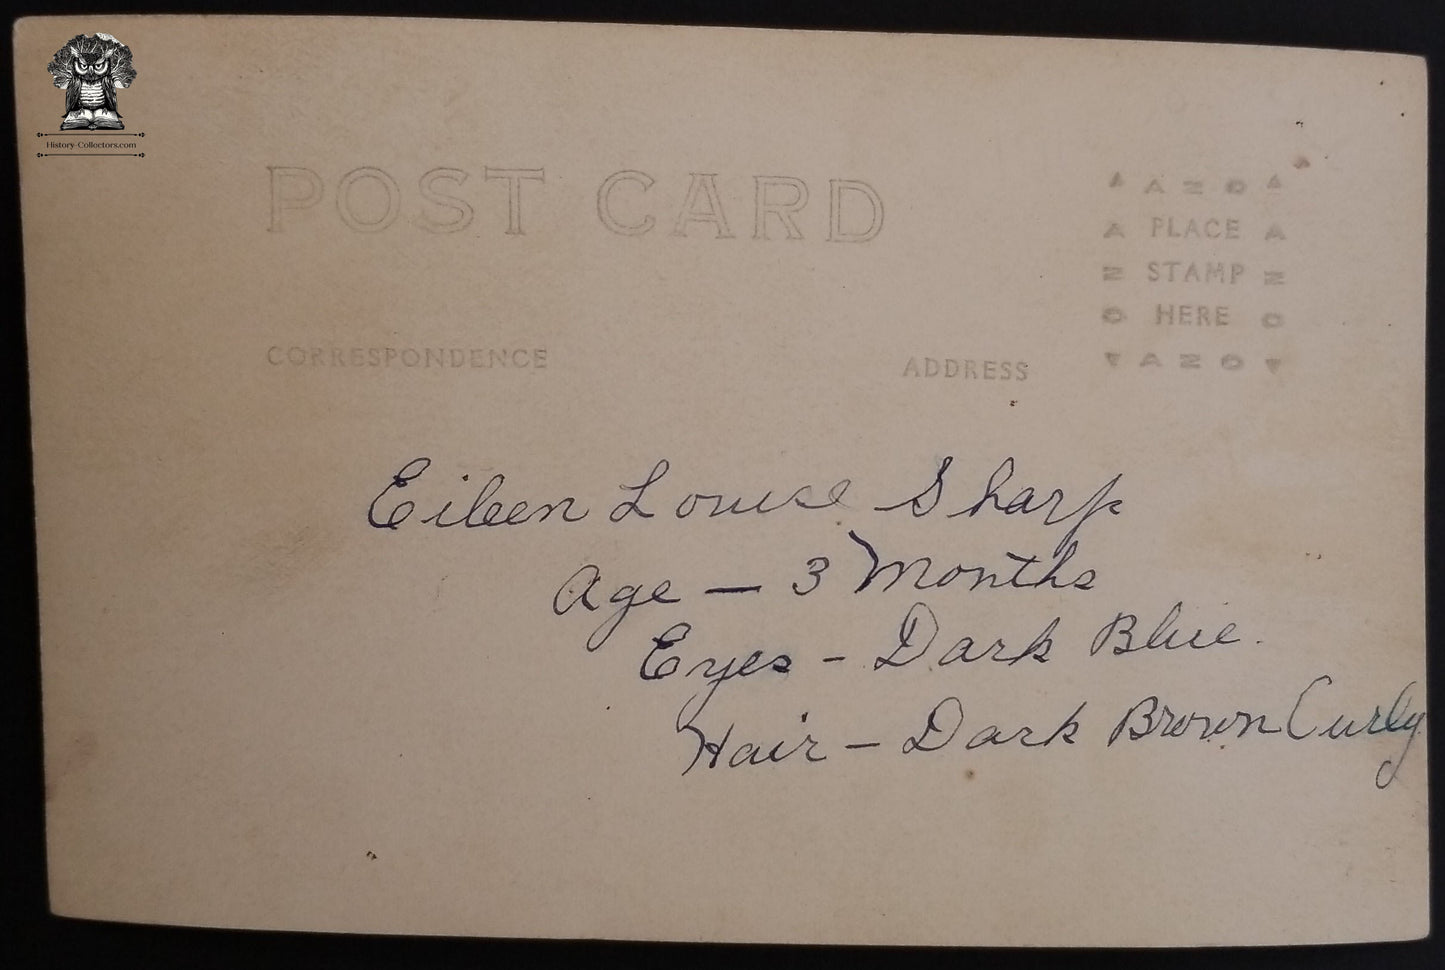 History-Collectors.com
POST CARD
AZO
A PLACE A
Z STAMP Z
O HERE O
AZO
CORRESPONDENCE
ADDRESS
Eileen Louise Sharp
Age — 3 Months
Eyes - Dark Blue.
Hair - Dark Brown Curly